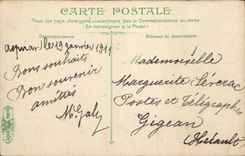 CARTE POSTALE
Tous les pays étrangers n'acceptent pas la Correspondance au recto
(Se renseigner à la Poste)
Correspondance
Adresse du destinataire
le 19 janvier 1911
Bons souhaits
Bon souvenir
amitiés
M. Galy
Mademoiselle
Marguerite Séverac
Postes et Télégraphes
Gigean
Hérault